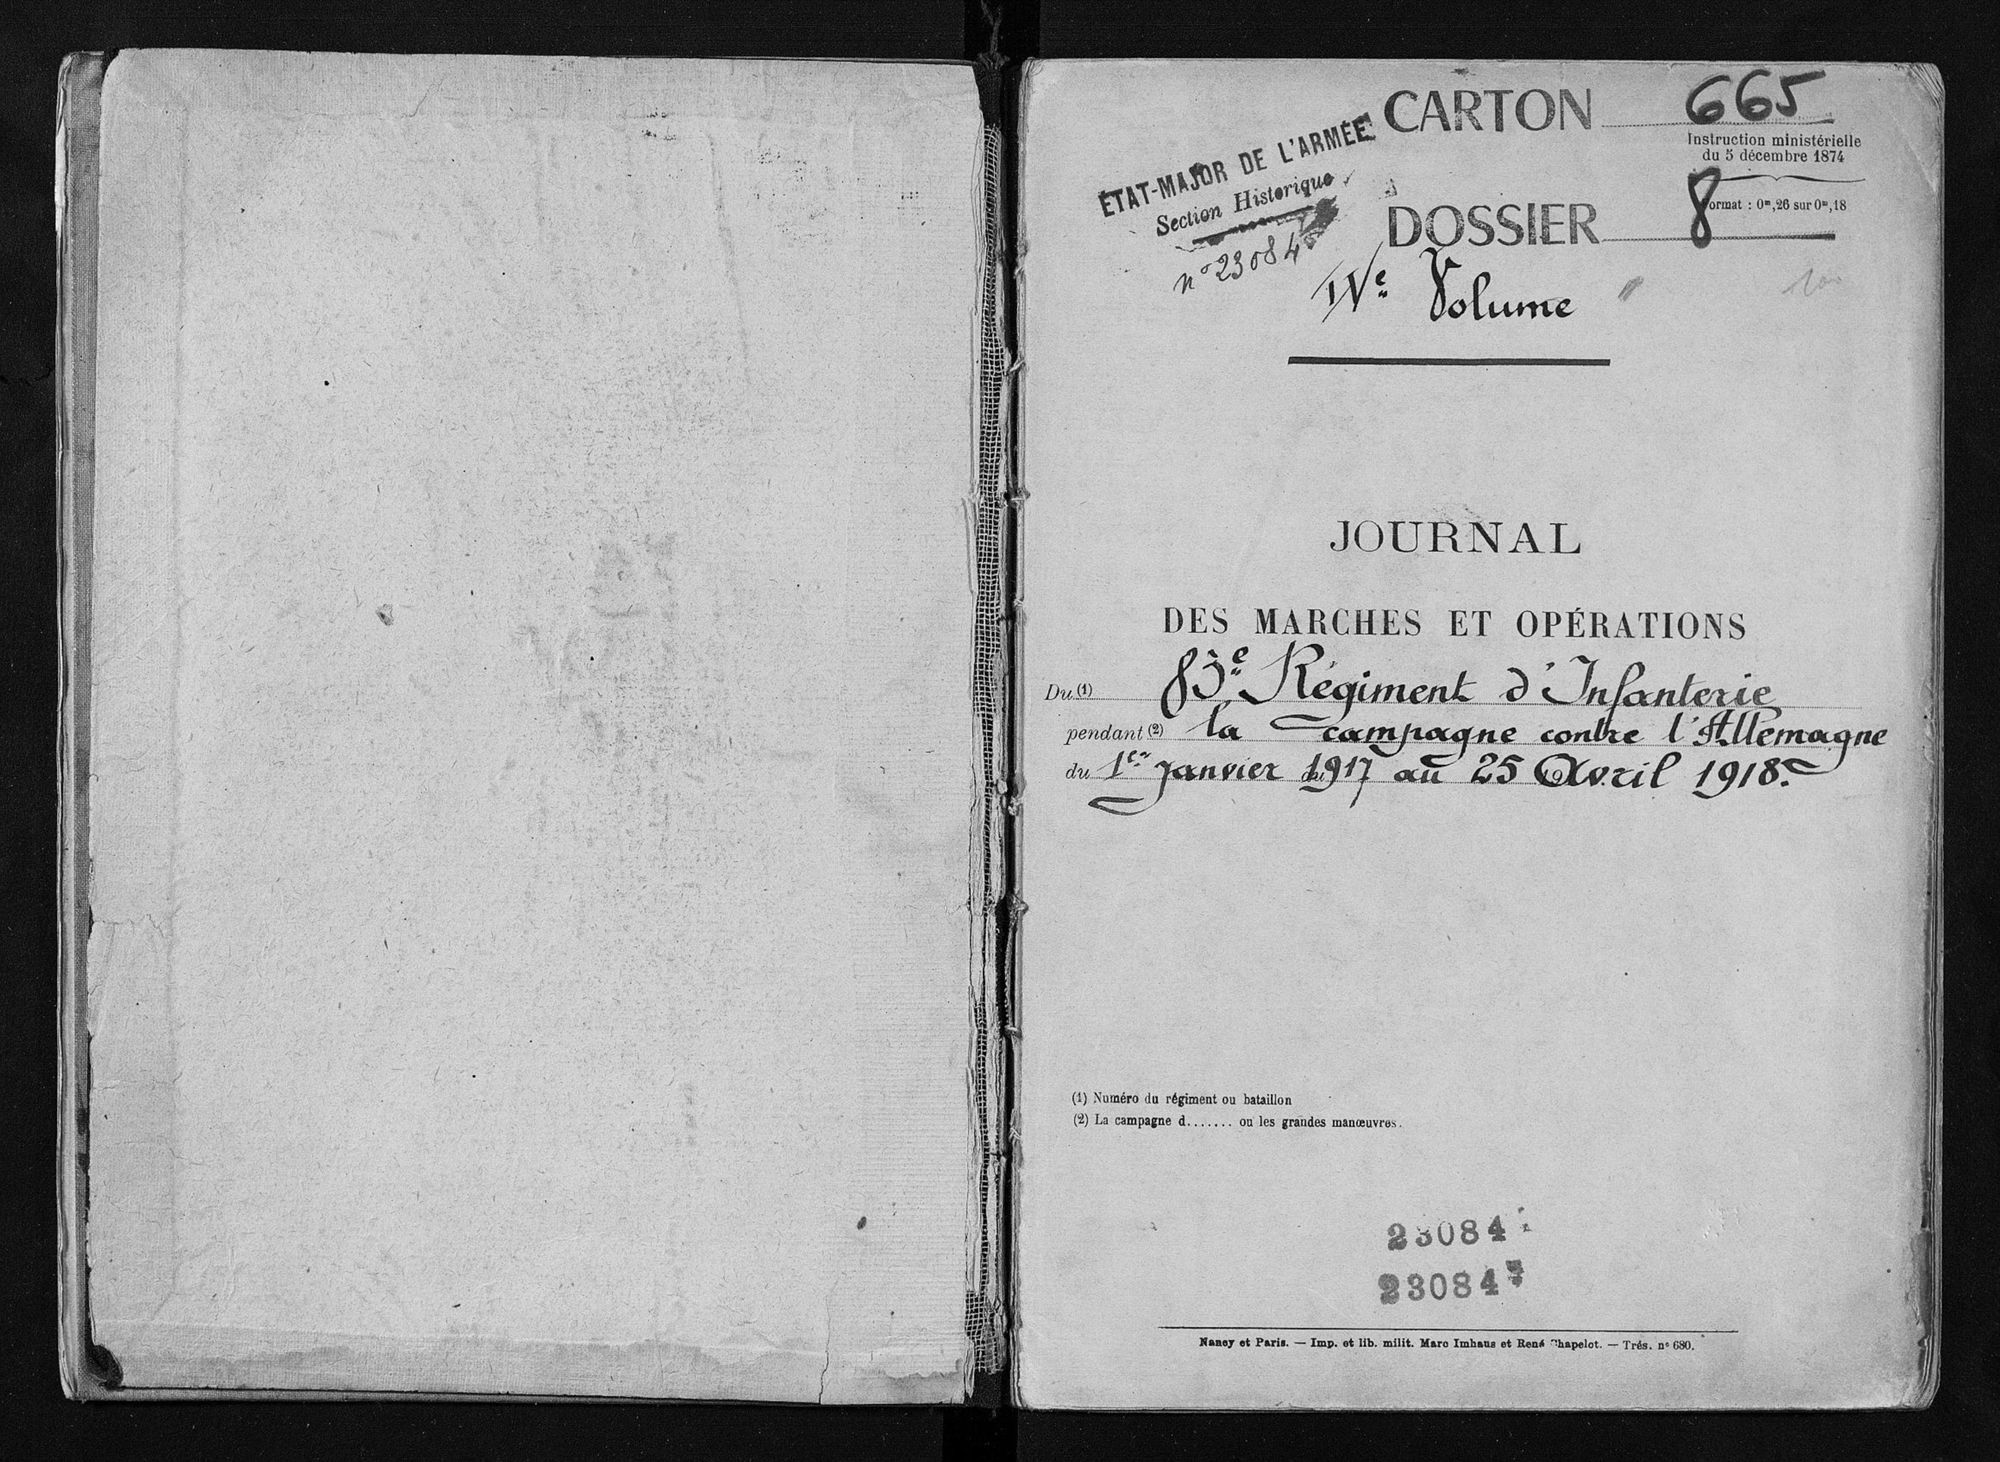 CARTON 665
Instruction ministérielle
du 5 décembre 1874
ÉTAT-MAJOR DE L'ARMÉE
Section Historique
n° 23084
DOSSIER 8
Format : 0m,26 sur 0m,18
IVe Volume
JOURNAL
DES MARCHES ET OPÉRATIONS
Du (1) 83e Régiment d'Infanterie
pendant (2) la campagne contre l'Allemagne
du 1er Janvier 1917 au 25 Avril 1918.
(1) Numéro du régiment ou bataillon
(2) La campagne d....... ou les grandes manœuvres.
23084
23084
Nancy et Paris. — Imp. et lib. milit. Marc Imhaus et René Chapelot. — Trés. n° 680.